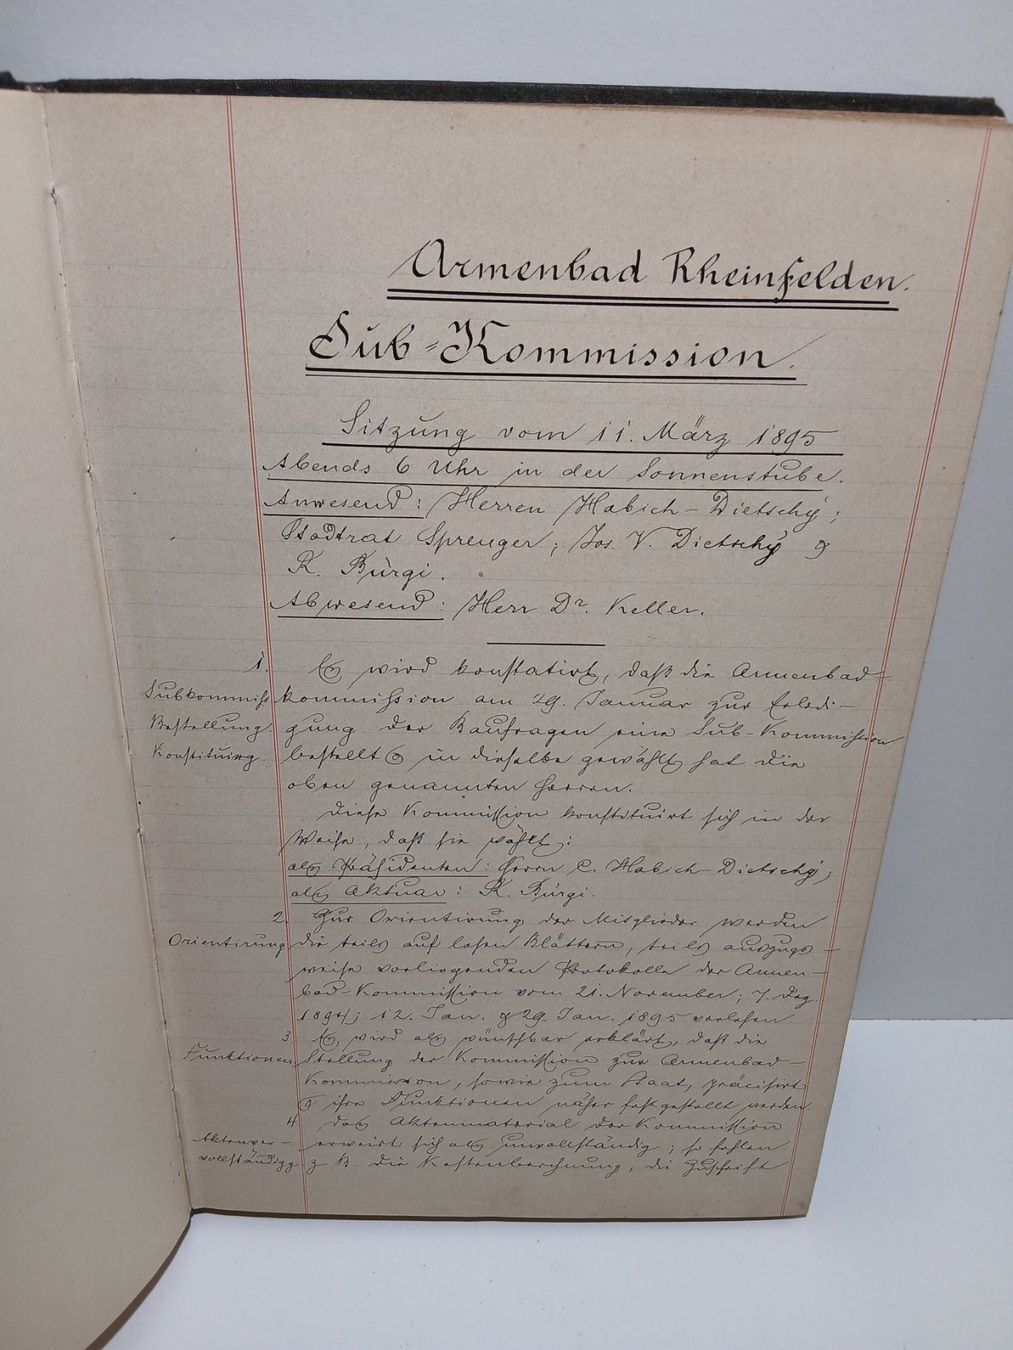 Armenbad Rheinfelden.
Sub-Kommission.
Sitzung vom 11. März 1895
Abends 6 Uhr in der Sonnenstube.
Anwesend: Herren Habich-Dietschÿ;
Stadtrat Sprenger; Jos. V. Dietschÿ &
K. Bürgi.
Abwesend: Herr Dr. Keller.
1. Es wird konstatirt, daß die Armenbad-
Subkommiss. kommission am 29. Januar zur Erledi-
Bestellung. gung der Baufragen eine Sub-Kommission
Konstituirg. bestellt & in dieselbe gewählt hat die
oben genannten Herren.
Diese Kommission konstituirt sich in der
Weise, daß sie wählt:
als Präsidenten: Herrn C. Habich-Dietschÿ;
als Aktuar: K. Bürgi.
2. Zur Orientirung der Mitglieder werden
Orientirung die teils auf losen Blättern, teils auszugs-
weise vorliegenden Protokolle der Armen-
bad-Kommission vom 21. November; 7. Dez.
1894; 12. Jan. & 29. Jan. 1895 verlesen
3. Es wird als wünschbar erklärt, daß die
Funktionen. Stellung der Kommission zur Armenbad-
Kommission, sowie zum Staat, präcisirt
& ihre Funktionen näher festgestellt werden.
4. Das Aktenmaterial der Kommission
Aktenver- erweist sich als unvollständig; so fehlen
vollständigg z. B. die Kostenberechnung, die Zuschrift